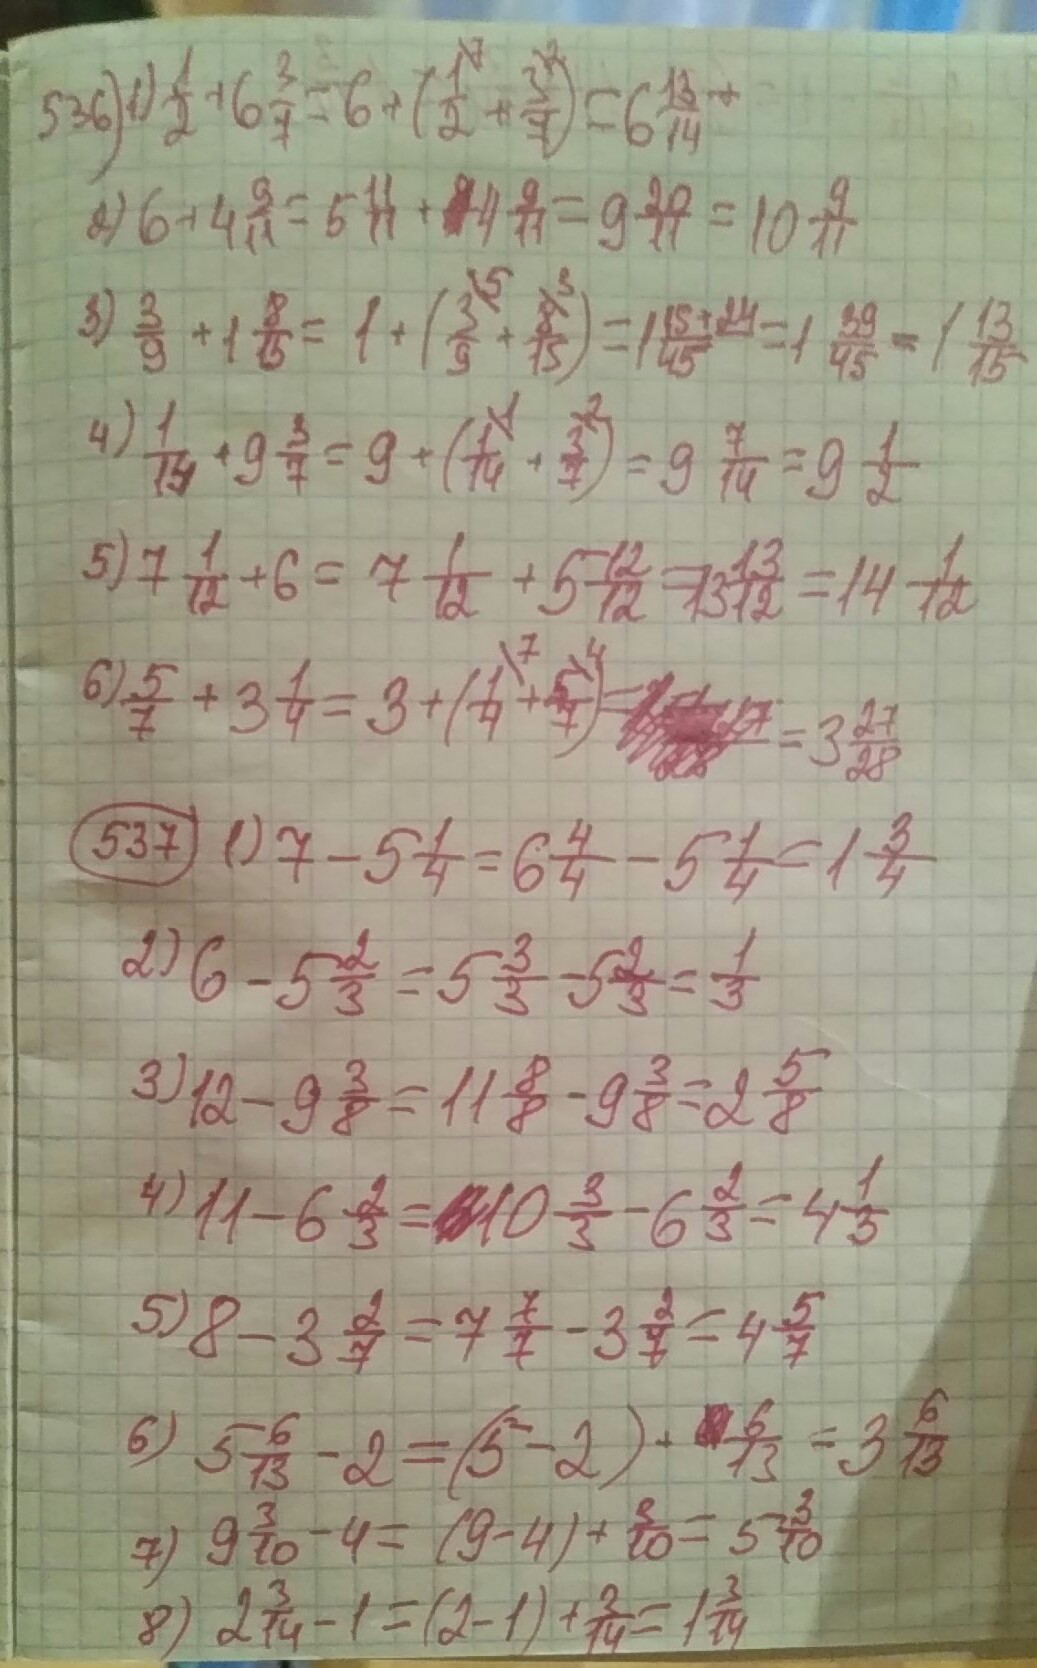 536) 1) 1/2 + 6 3/7 = 6 + (1/2 \7 + 3/7 \2) = 6 13/14
2) 6 + 4 9/11 = 5 11/11 + 4 9/11 = 9 20/11 = 10 9/11
3) 3/9 + 1 8/15 = 1 + (3/9 \5 + 8/15 \3) = 1 15+24/45 = 1 39/45 = 1 13/15
4) 1/14 + 9 3/7 = 9 + (1/14 \1 + 3/7 \2) = 9 7/14 = 9 1/2
5) 7 1/12 + 6 = 7 1/12 + 5 12/12 = 13 13/12 = 14 1/12
6) 5/7 + 3 1/4 = 3 + (1/4 \7 + 5/7 \4) = = 3 27/28
537 1) 7 - 5 1/4 = 6 4/4 - 5 1/4 = 1 3/4
2) 6 - 5 2/3 = 5 3/3 - 5 2/3 = 1/3
3) 12 - 9 3/8 = 11 8/8 - 9 3/8 = 2 5/8
4) 11 - 6 2/3 = 10 3/3 - 6 2/3 = 4 1/3
5) 8 - 3 2/7 = 7 7/7 - 3 2/7 = 4 5/7
6) 5 6/13 - 2 = (5 - 2) + 6/13 = 3 6/13
7) 9 3/10 - 4 = (9 - 4) + 3/10 = 5 3/10
8) 2 3/14 - 1 = (2 - 1) + 3/14 = 1 3/14